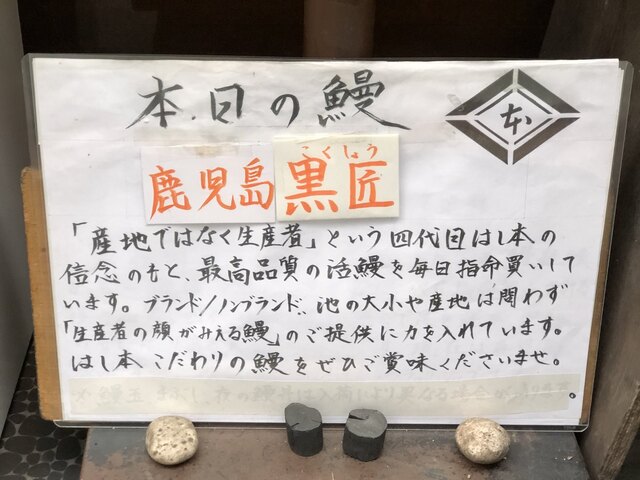 本日の鰻
本
鹿児島
こくしょう
黒匠
「産地ではなく生産者」という四代目はし本の
信念のもと、最高品質の活鰻を毎日指命買いして
います。ブランド/ノンブランド、池の大小や産地は問わず
「生産者の顔がみえる鰻」のご提供に力を入れています。
はし本こだわりの鰻をぜひご賞味くださいませ。